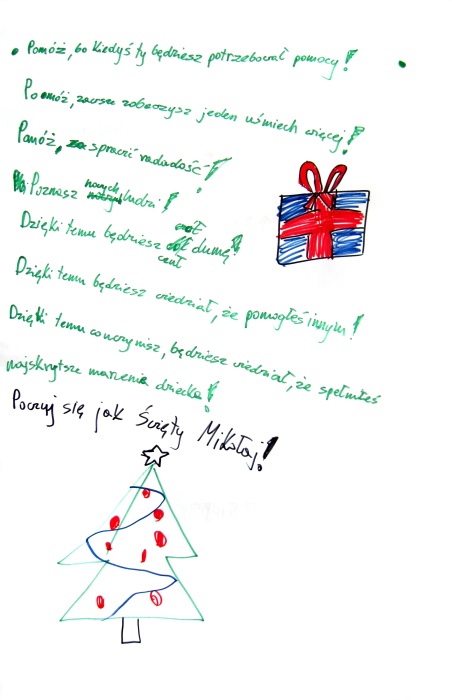 Pomóż, bo kiedyś ty będziesz potrzebował pomocy!
Pomóż, zawsze zobaczysz jeden uśmiech więcej!
Pomóż, sprawić radadość!
Poznasz nowych ludzi!
Dzięki temu będziesz czuł dumę!
Dzięki temu będziesz wiedział, że pomogłeś innym!
Dzięki temu co uczynisz, będziesz wiedział, że spełniłeś
najskrytsze marzenia dziecka!
Poczuj się jak Święty Mikołaj!